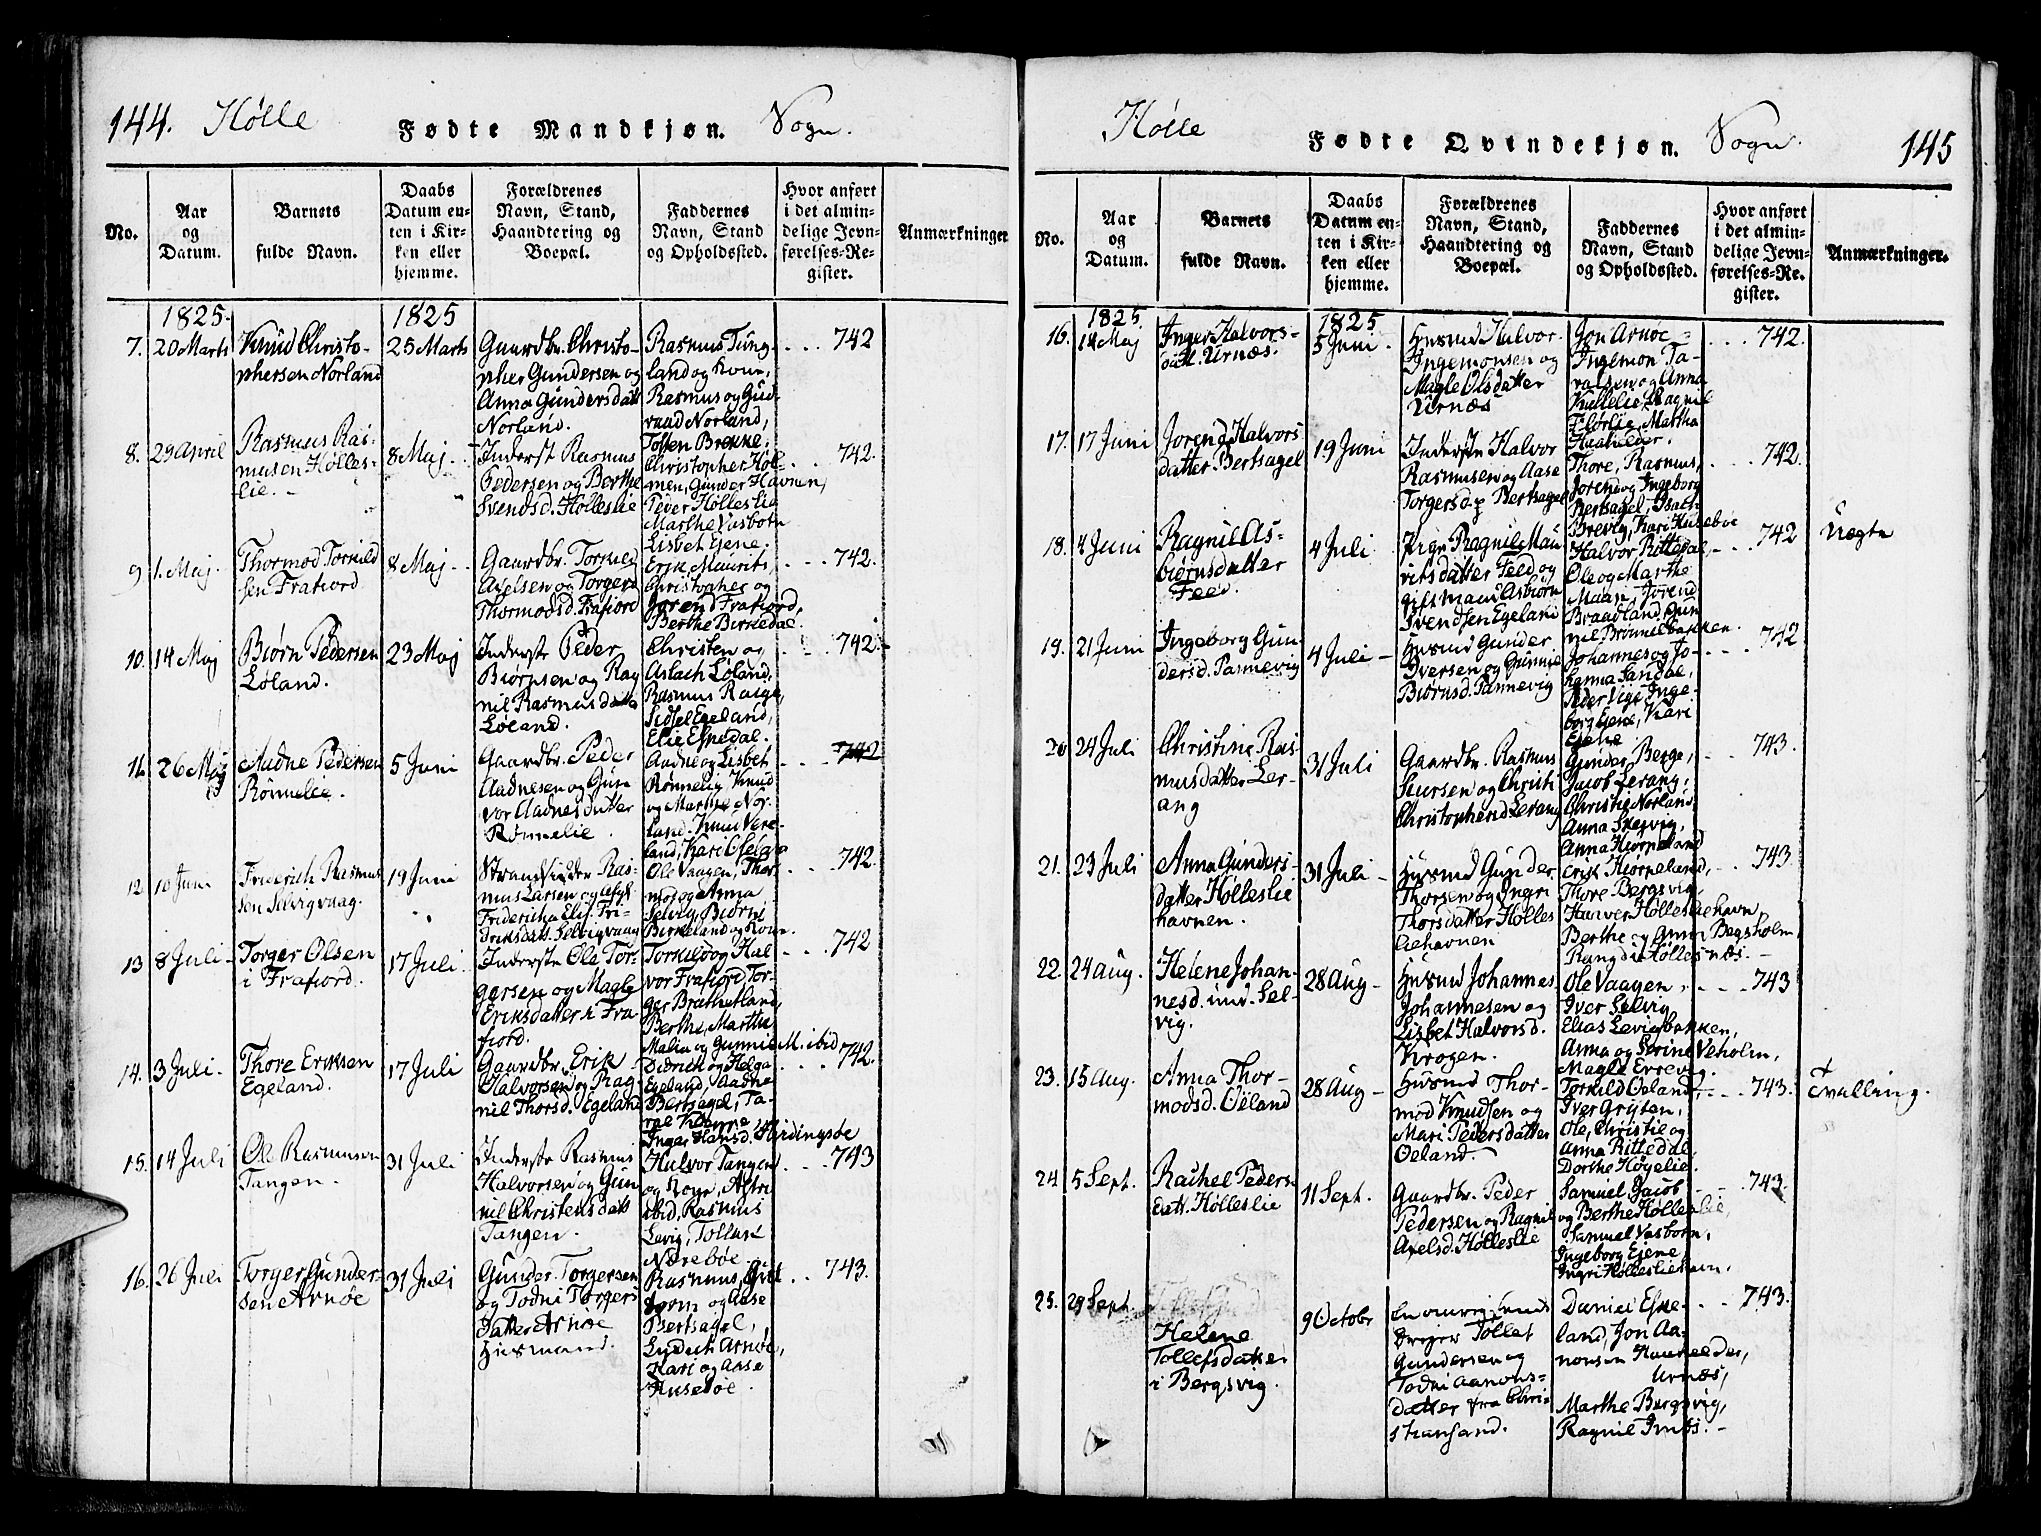 144. Hølle Fødte Mandkjøn. Sogn.
No.
Aar
og
Datum.
Barnets
fulde Navn.
Daabs
Datum en-
ten i Kir-
ken eller
hjemme.
Forældrenes
Navn, Stand,
Haandtering og
Boepæl.
Faddernes
Navn, Stand
og Opholdssted.
Hvor anført
i det almin-
delige Jevn-
førelses-Re-
gister.
Anmærkninger
1825.
1825
7.
20 Marts
Knud Christo-
phersen Norland
25 Marts
Gaardbr. Christo-
pher Gundersen og
Anna Gundersdatt
Norland.
Rasmus Tung-
land og Kone,
Rasmus og Gud-
vaad Norland,
Tosten Brekke.
742
8.
29 April
Rasmus Ras-
musen Hølles-
lie.
8 Maj
Inderst Rasmus
Pedersen og Berthe
Svendsd. Hølleslie
Christopher Høl-
men, Gunder Havnen,
Peder Hølleslie
Marthe Vasbotn
Lisbet Eiene.
742.
9
1. Maj.
Thormod Torkild
sen Frafiord
8 Maj
Gaardbr. Torkild
Axelsen og Torgers
Thormodsd. Frafiord
Erik, Maurits,
Christopher og
Jorend Frafiord,
Berthe Birkedal.
742.
10.
14 Maj
Biørn Pedersen
Løland.
23 Maj
Inderste Peder
Biørnsen og Rag
nil Rasmusdatter
Løland.
Christen og
Aslach Løland,
Rasmus Rasge,
Sidsel Egeland,
Elie Espedal.
742.
11.
26 Maj
Aadne Pedersen
Rønnelie.
5 Juni
Gaardbr. Peder
Aadnesen og Gun
vor Aadnesdatter
Rønnelie.
Aadne og Lisbet
Rønnelig, Knud
og Marthe Nor-
land. Knud Vere-
land, Kari Oseløa
742
12
10 Juni
Friderich Rasmus
sen Selvigvaag.
19 Juni
Strandsidder Ras-
mus Larsen og
Friderika Elis. Fri-
driksdatt. Selvigvaag
Ole Vaagen, Thor-
mod og Anna
Selvig, Biørn
Birkeland og Kone.
742.
13
8 Juli
Torger Olsen
i Frafiord.
17 Juli
Inderste Ole Tor-
gersen og Magle
Eriksdatter i Fra
fiord.
Torkild og Hal
vor Frafiord Tor-
ger Brathetland,
Berthe, Marthe
Malia og Gunnie M. ibid
742
14.
3 Juli.
Thore Eriksen
Egeland.
17 Juli
Gaardbr. Erik
Halvorsen og Rag-
nil Thorsd. Egeland
Didrich og Helga
Egeland Aadne
Bertsagel, Ta-
Inger Hansd. Hardingsøe
742.
15.
14 Juli
Ole Rasmusen
Tangen.
31 Juli
Inderste Rasmus
Halvorsen og Gun
nil Christensdatt
Tangen.
Halvor Tangen
og Kone, Astri
ibid, Rasmus
Levig, Tollak
Nærebøe.
743
16.
26 Juli
Torger Gunder-
sen Arnøe
31 Juli
Gunder Torgersen
og Todni Torgers
datter Arnøe
Husmand.
Rasmus, Gut
torm og Aase
Bertsagel,
Endech Arnøe,
Kari og Aase
Husebøe.
743.
Hølle Fødte Qvindekjøn. Sogn. 145
No.
Aar
og
Datum.
Barnets
fulde Navn.
Daabs
Datum en-
ten i Kir-
ken eller
hjemme.
Forældrenes
Navn, Stand,
Haandtering og
Boepæl.
Faddernes
Navn, Stand
og Opholdssted.
Hvor anført
i det almin-
delige Jevn-
førelses-Re-
gister.
Anmærkninger.
1825.
1825
16.
14 Maj
Inger Halvors-
datt. Urnæs.
5 Juni
Husmd Halvor
Ingemonsen og
Magle Olsdatter
Urnæs
Jon Arnøe
Ingemon Ta-
ralsen og Anna
Knatelie, Ragnil
Flørlie, Martha
Haahelder.
742.
17.
17 Juni
Jorend Halvors
datter Bertsagel
19 Juni
Inderste Halvor
Rasmusen og Aase
Torgersd. p Bertsagel
Thore, Rasmus,
Jorend og Ingeborg
Bertsagel, Isach
Brevig, Kari Husebøe
742.
18.
4 Juni
Ragnil As-
biørnsdatter
Feed.
4 Juli
Pige Ragnil Mau
ritsdatter Feed og
gift Mand Asbiørn
Svendsen Egeland
Halvor Rittedal,
Ole og Marthe
Maan, Jorend
Braadland, Gun
nil Brønnelbakken.
742
Uægte
19.
21 Juni
Ingeborg Gun
dersd. Pannevig
4 Juli
Husmd Gunder
Iversen og Gunnie
Biørnsd. Pannevig
Johannes og Jo-
hanna Sandal,
Peder Vige, Inge-
borg Eiene, Kari
Eiene
742
20
24 Juli
Christine Ras
musdatter Ler-
ang
31 Juli
Gaardbr. Rasmus
Siursen og Christi
Christophersd Lerang
Gunder Berge,
Jacob Lerang,
Christie Norland
Anna Skervig,
Anna Hiørneland
743.
21.
23 Juli
Anna Gunders-
datter Hølleslie
havnen.
31 Juli
Husmd Gunder
Thorsen og Ingri
Thorsdatter Hølles
liehavnen
Erik Hiørneland,
Thore Bergsvig,
Halvor Hølleslie havn,
Berthe og Anna Bergsholm,
Rangdi Høllesnæs.
743
22.
24 Aug.
Helene Johan-
nesd. ind. Sel-
vig.
28 Aug
Husmd Johannes
Johannesen og
Lisbet Halvorsd.
Krogen.
Ole Vaagen,
Iver Selvig
Elias Levigbakken,
Anna og Serine Veholm,
Magle Errevig.
743
23.
15 Aug.
Anna Thor-
modsd. Oeland
28 Aug
Husmd Thor-
mod Knudsen og
Mari Pedersdatter
Oeland.
Torkild Oeland,
Iver Gryten,
Ole, Christie og
Anna Rittedal,
Dorthe Høgelie.
743.
Tvilling.
24
5 Sept.
Rachel Peders-
datt. Hølleslie
11 Sept.
Gaardbr. Peder
Pedersen og Ragnil
Axelsd. Hølleslie
Samuel, Jacob
og Berthe Hølleslie,
Samuel Vasbotn,
Ingeborg Eiene,
Ingri Hølleslie havn.
743.
25.
29 Sept.
Helene
Tollefsdatter
i Bergsvig.
9 Octobr
Tollef
Gundersen og
Todni Aanons-
datter fra Chri-
stiansand.
Daniel Eske-
land, Jon Aa-
nonsen Haahelder,
Urnæs,
Marthe Bergsvig,
Ragnil Imøs.
743.